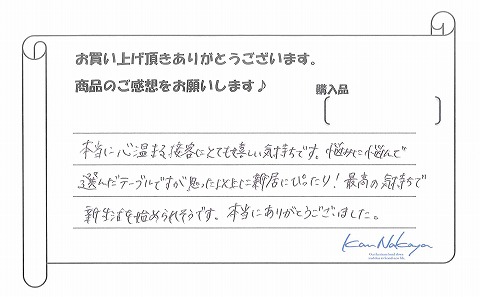 お買い上げ頂きありがとうございます。
商品のご感想をお願いします♪
購入品
本当に心温まる接客にとても嬉しい気持ちです。悩みに悩んで
選んだテーブルですが思った以上に新居にぴったり！最高の気持ちで
新生活を始められそうです、本当にありがとうございました。
Kan Nakaya